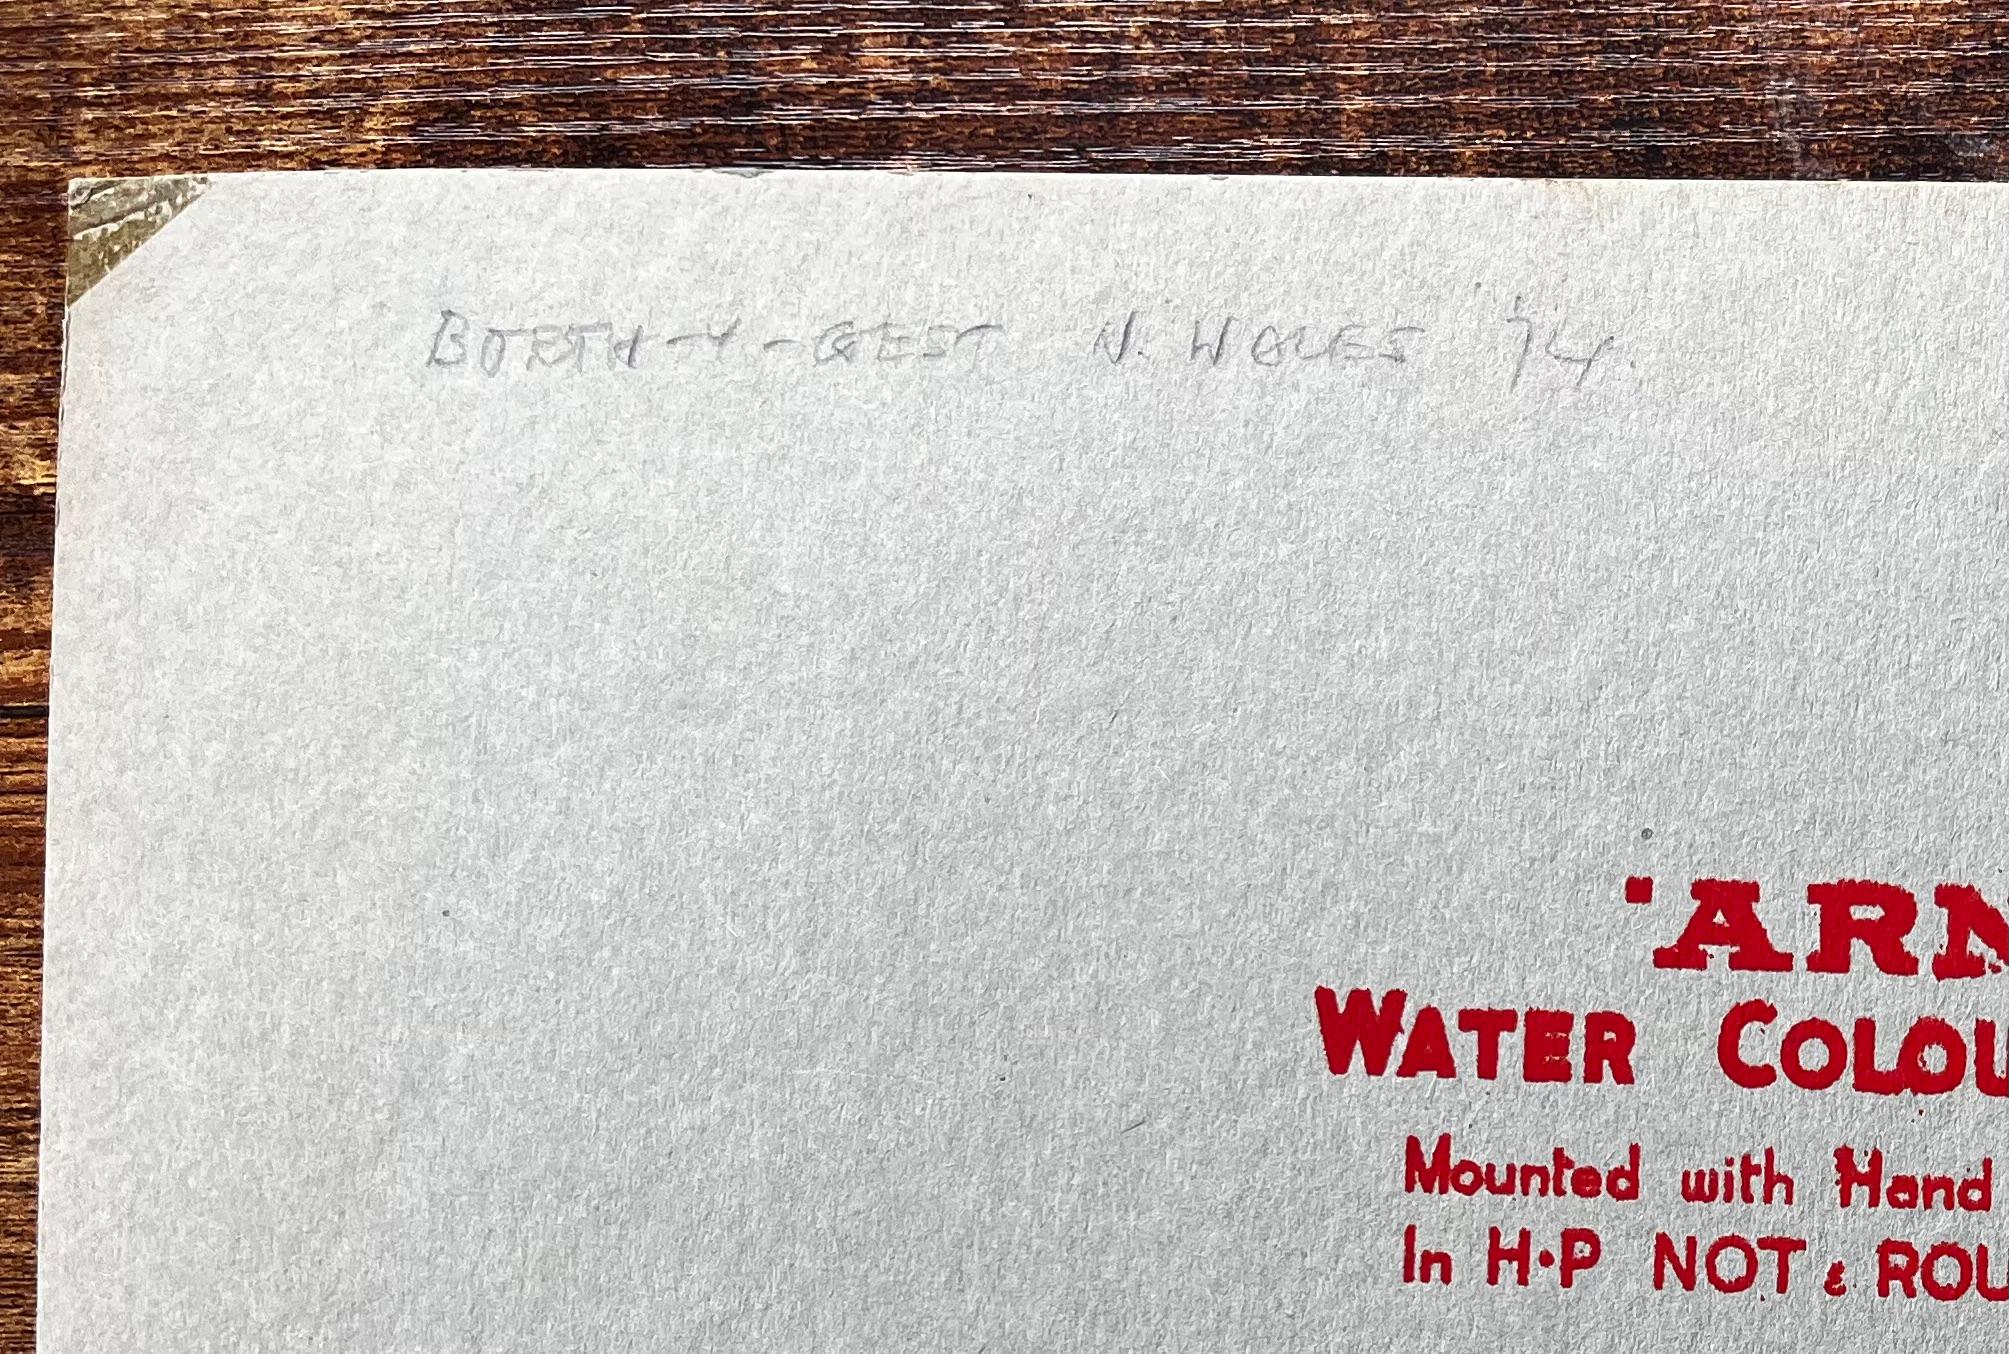 BORTH-Y-GEST N. WALES '74.
"ARN
WATER COLOU
Mounted with Hand
In H·P NOT & ROU